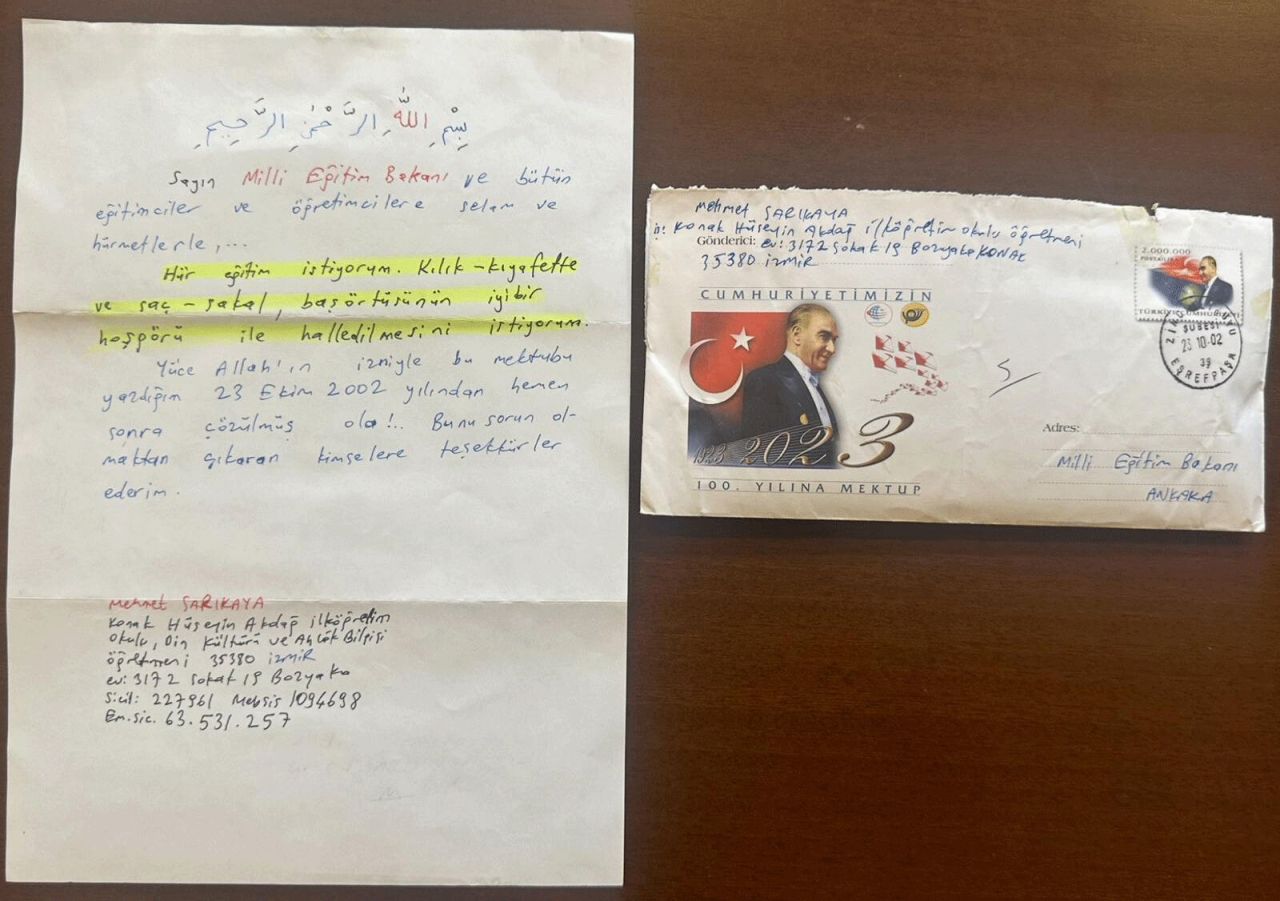 بِسْمِ اللّٰهِ الرَّحْمٰنِ الرَّحِيمِ
Sayın Milli Eğitim Bakanı ve bütün
eğitimciler ve öğretimcilere selam ve
hürmetlerle,...
Hür eğitim istiyorum. Kılık-kıyafette
ve saç-sakal, başörtüsünün iyi bir
hoşgörü ile halledilmesini istiyorum.
Yüce Allah'ın izniyle bu mektubu
yazdığım 23 Ekim 2002 yılından hemen
sonra çözülmüş ola!.. Bunu sorun ol-
maktan çıkaran kimselere teşekkürler
ederim.
Mehmet SARIKAYA
Konak Hüseyin Akdağ ilköğretim
Okulu, Din Kültürü ve Ahlâk Bilgisi
öğretmeni 35380 izmir
ev: 3172 Sokak 19 Bozyaka
Sicil: 227961 Mebsis 1094698
Em.sic. 63.531.257
Mehmet SARIKAYA
iş: Konak Hüseyin Akdağ ilköğretim okulu öğretmeni
Gönderici: ev: 3172 Sokak 19 Bozyaka KONAK
35380 izmir
CUMHURİYETİMİZİN
1923 2023
100. YILINA MEKTUP
2.000.000
POSTA
TÜRKİYE CUMHURİYETİ
ŞUBESİ
23 10 02
39
EŞREFPAŞA
Adres:
Milli Eğitim Bakanı
ANKARA